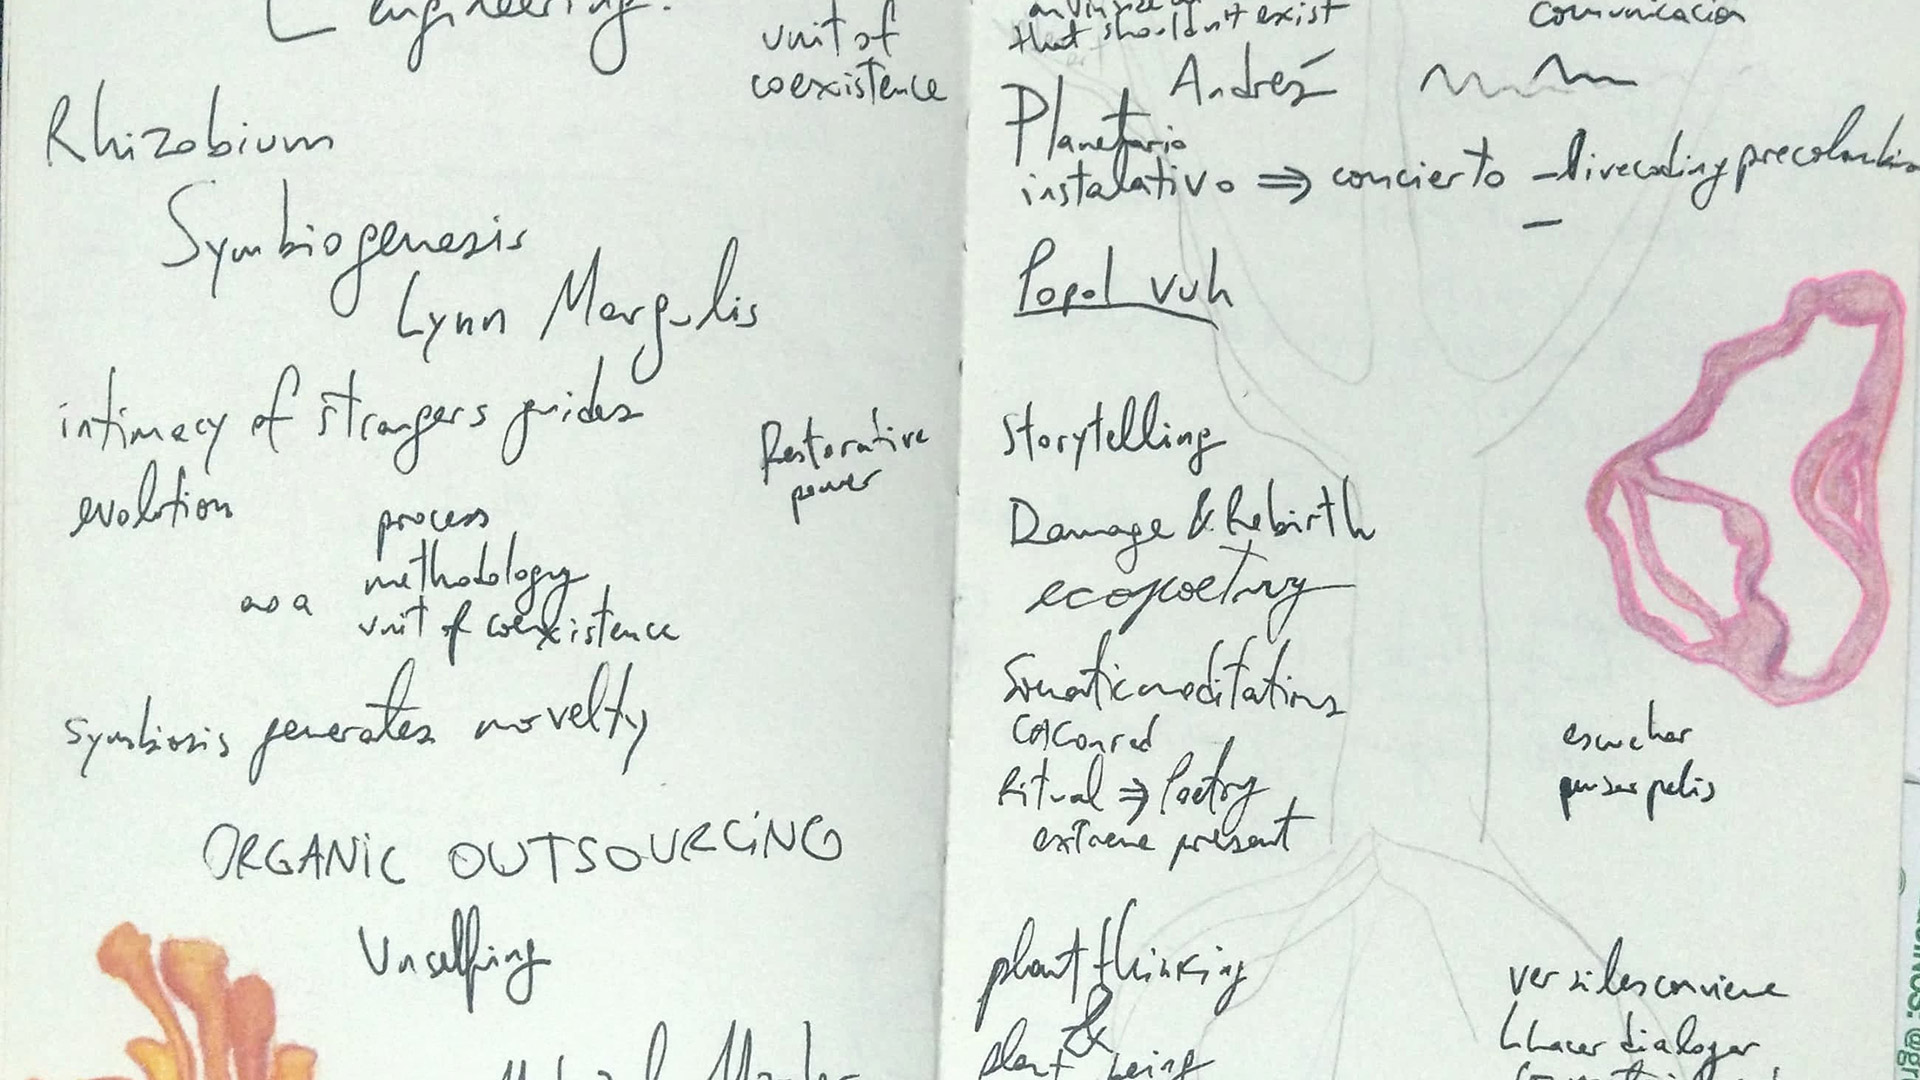 engineering.
unit of
coexistence
Rhizobium
Symbiogenesis
Lynn Margulis
intimacy of strangers guides
evolution
Restorative
power
process
methodology
as a
unit of coexistence
symbiosis generates novelty
ORGANIC OUTSOURCING
Unselfing
that shouldn't exist
comunicación
Andrés
Planetario
instalativo ⇒ concierto – livecoding
–
Popol Vuh
Storytelling
Damage & Rebirth
ecopoetry
Somatic meditations
CAConrad
Ritual ⇒ Poetry
extreme present
escuchar
plant thinking
&
plant being
ver si les conviene
hacer dialogar